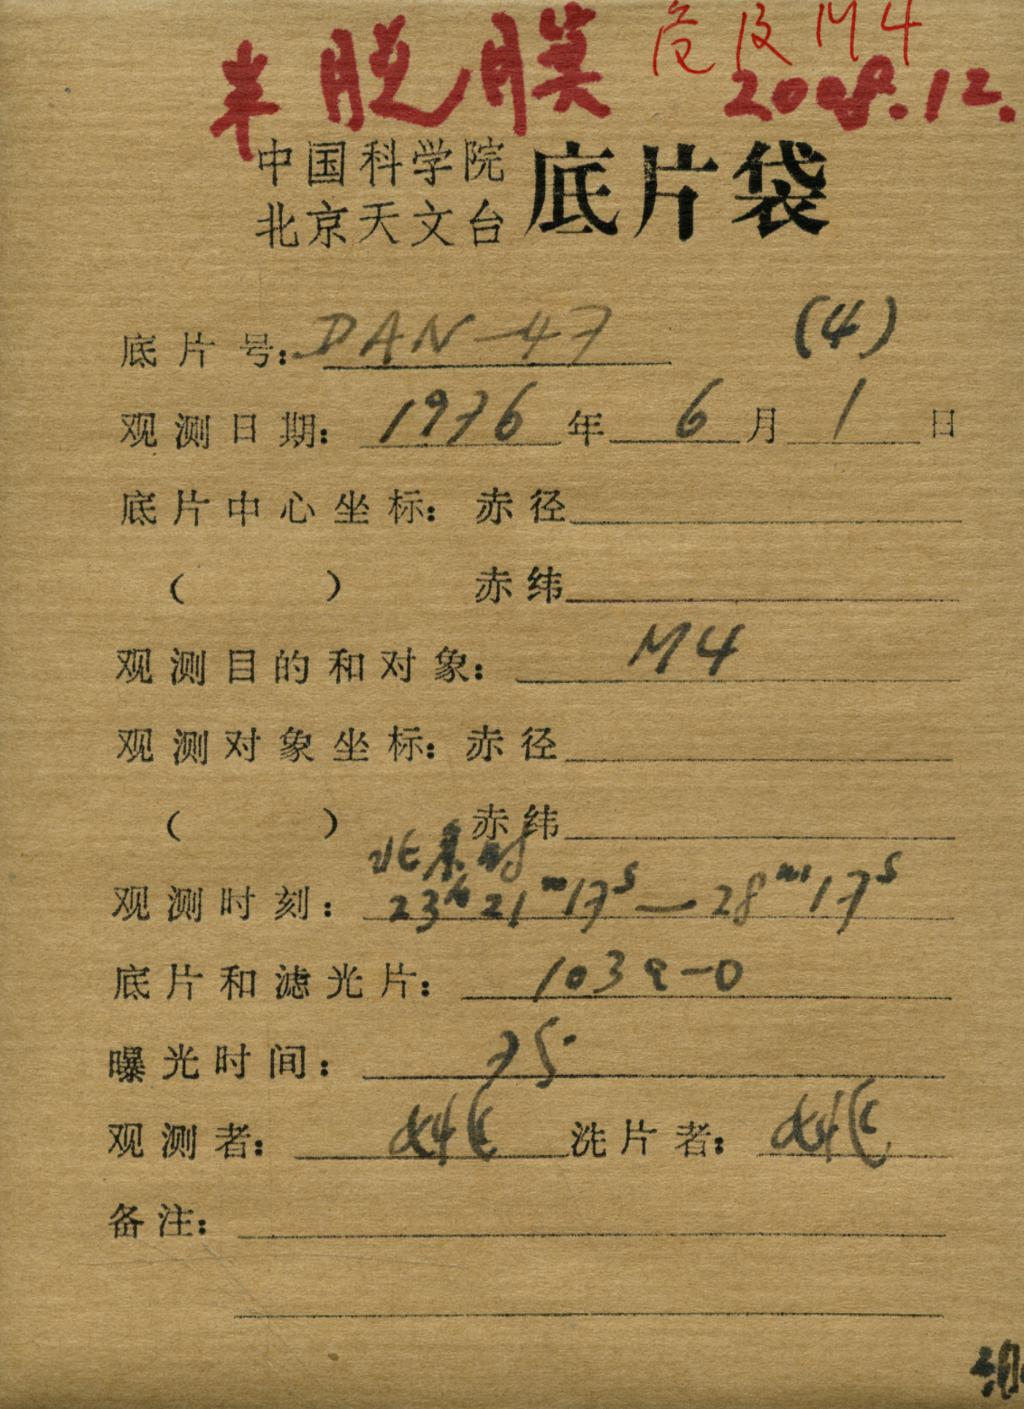 危及M4
半脱膜 2008.12.
中国科学院
北京天文台 底片袋
底片号: DAN-47 (4)
观测日期: 1976年6月1日
底片中心坐标: 赤径
( ) 赤纬
观测目的和对象: M4
观测对象坐标: 赤径
( ) 赤纬
北京时
观测时刻: 23h21m17s—28m17s
底片和滤光片: 103a-O
曝光时间: 75
观测者: 洗片者:
备注: